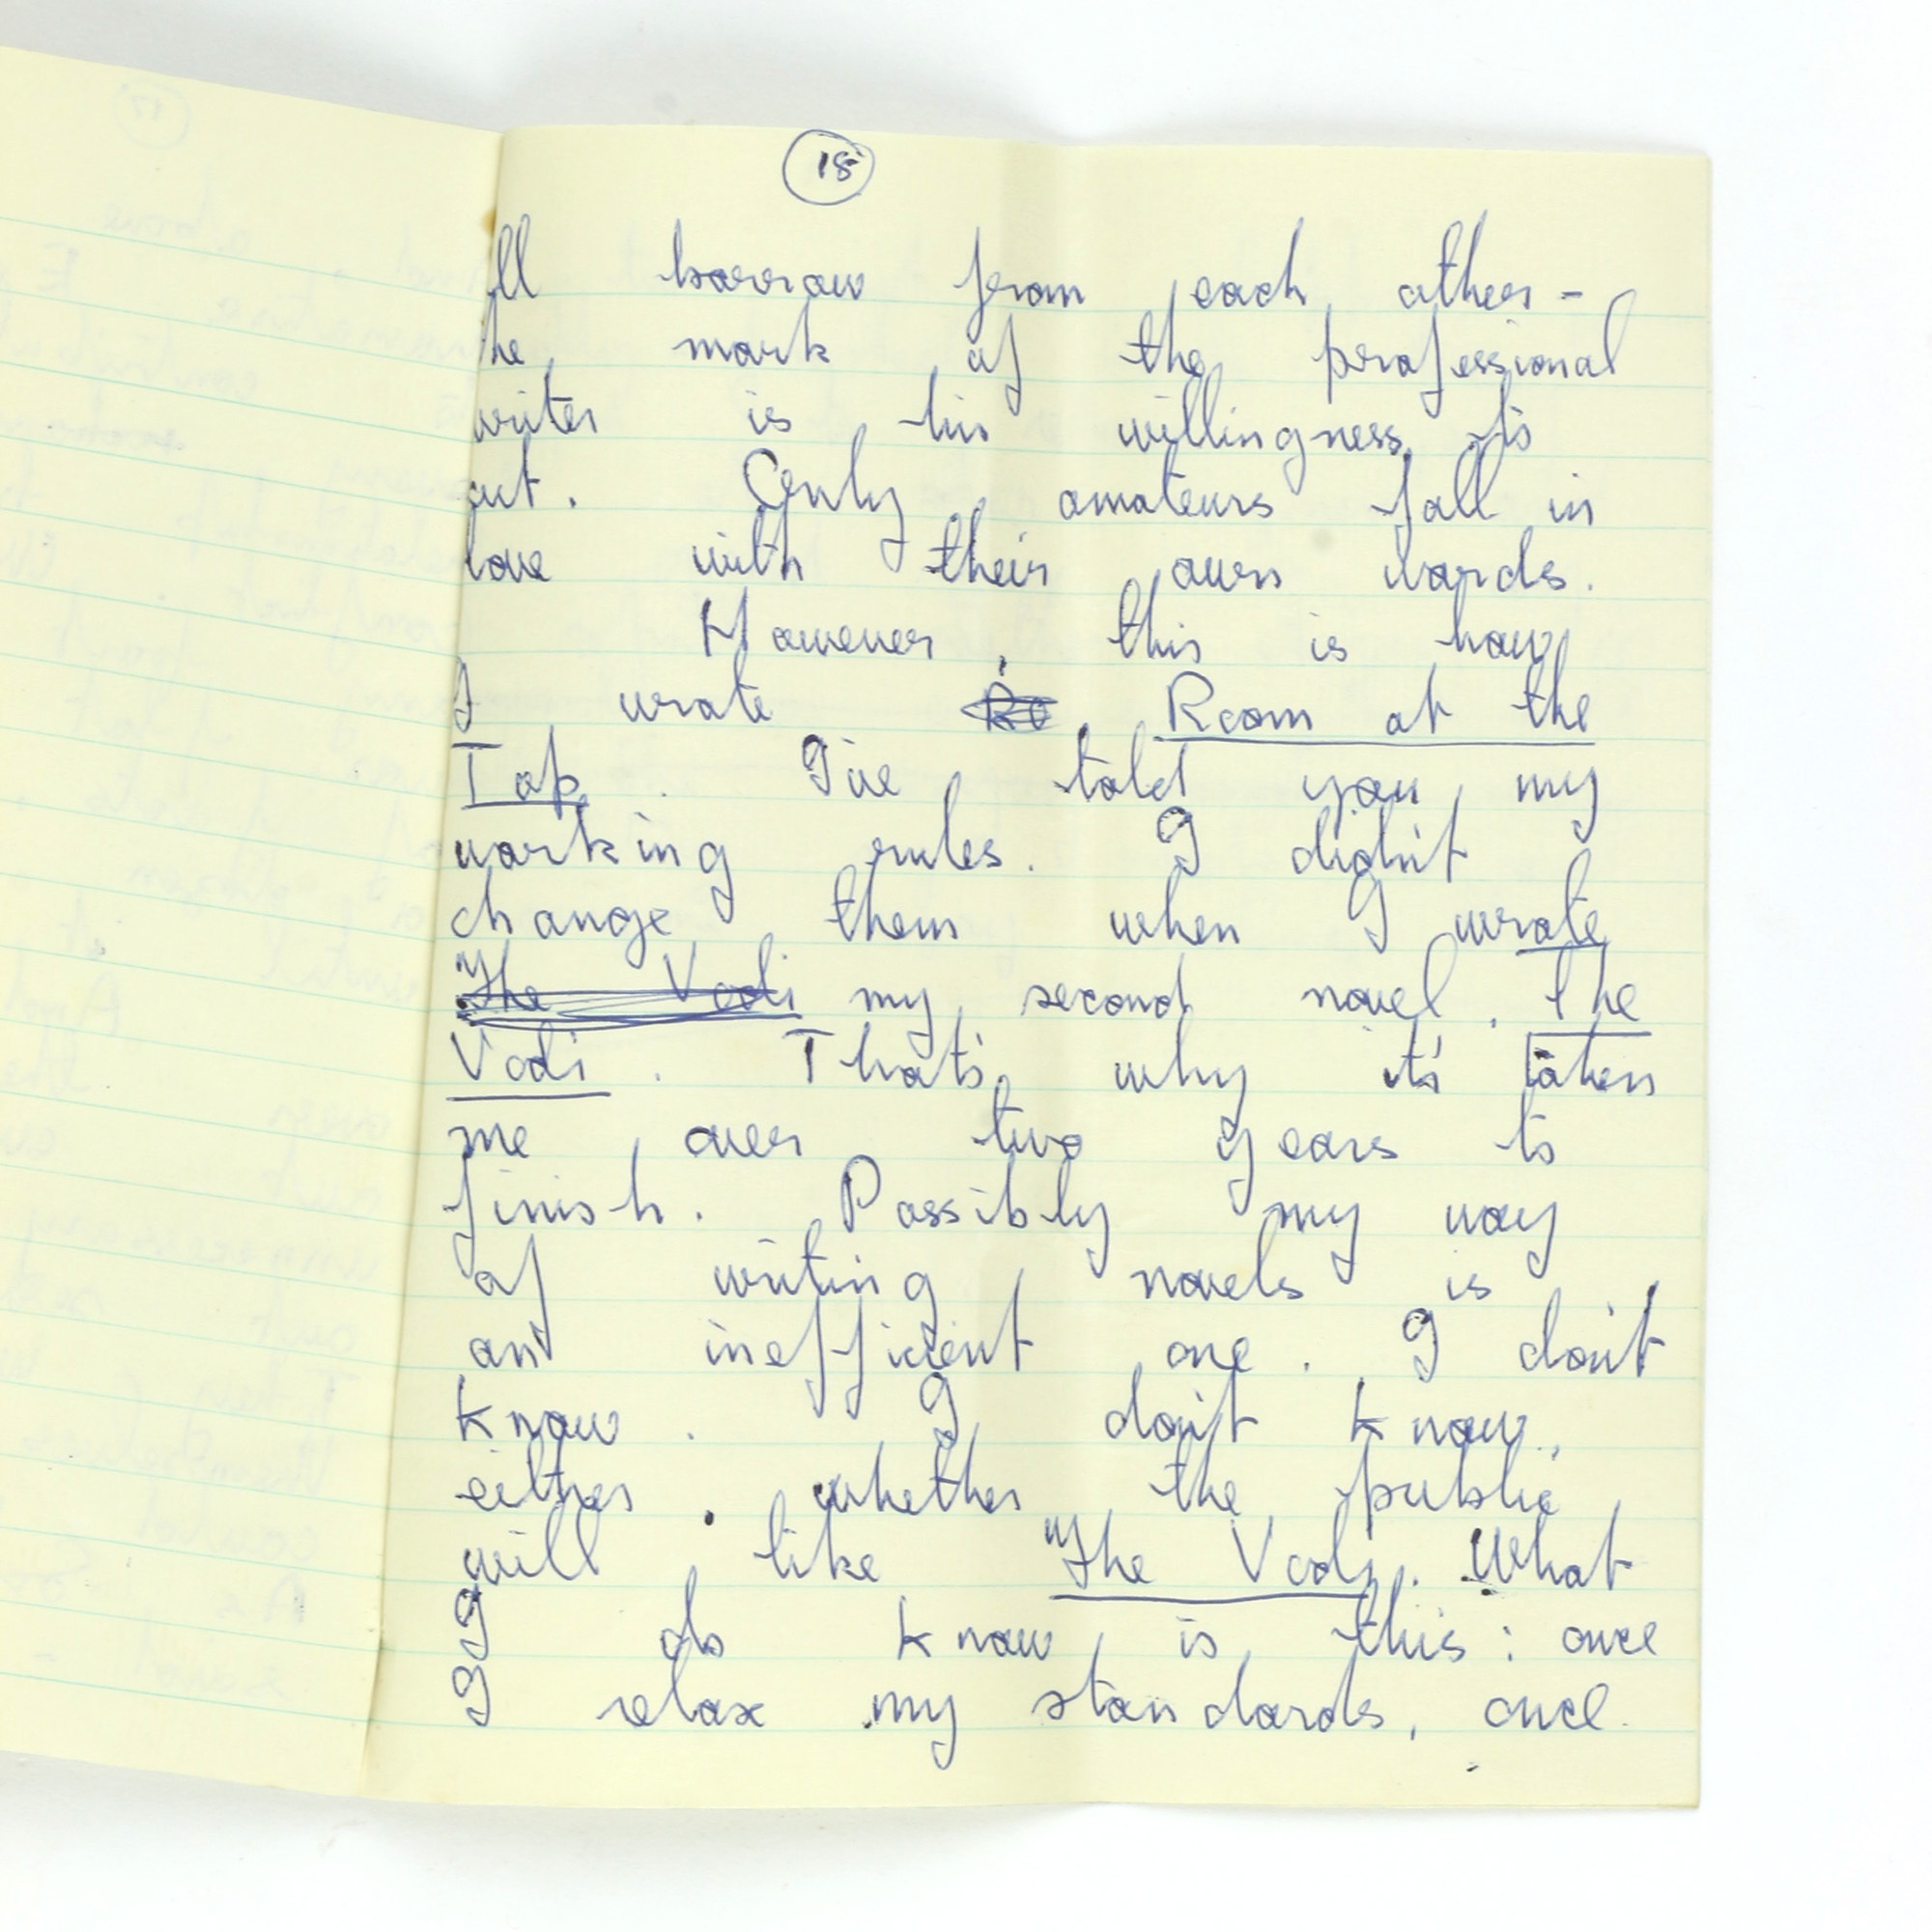 18
all borrow from each other -
the mark of the professional
writer is his willingness to
cut. Only amateurs fall in
love with their own words.
However, this is how
I wrote Ro Room at the
Top. I've told you my
working rules. I didn't
change them when I wrote
"The Vodi my second novel, The
Vodi. That's why it's taken
me over two years to
finish. Possibly my way
of writing novels is
an inefficient one. I don't
know. I don't know,
either, whether the public
will like "The Vodi. What
I do know is this: once
I relax my standards, once